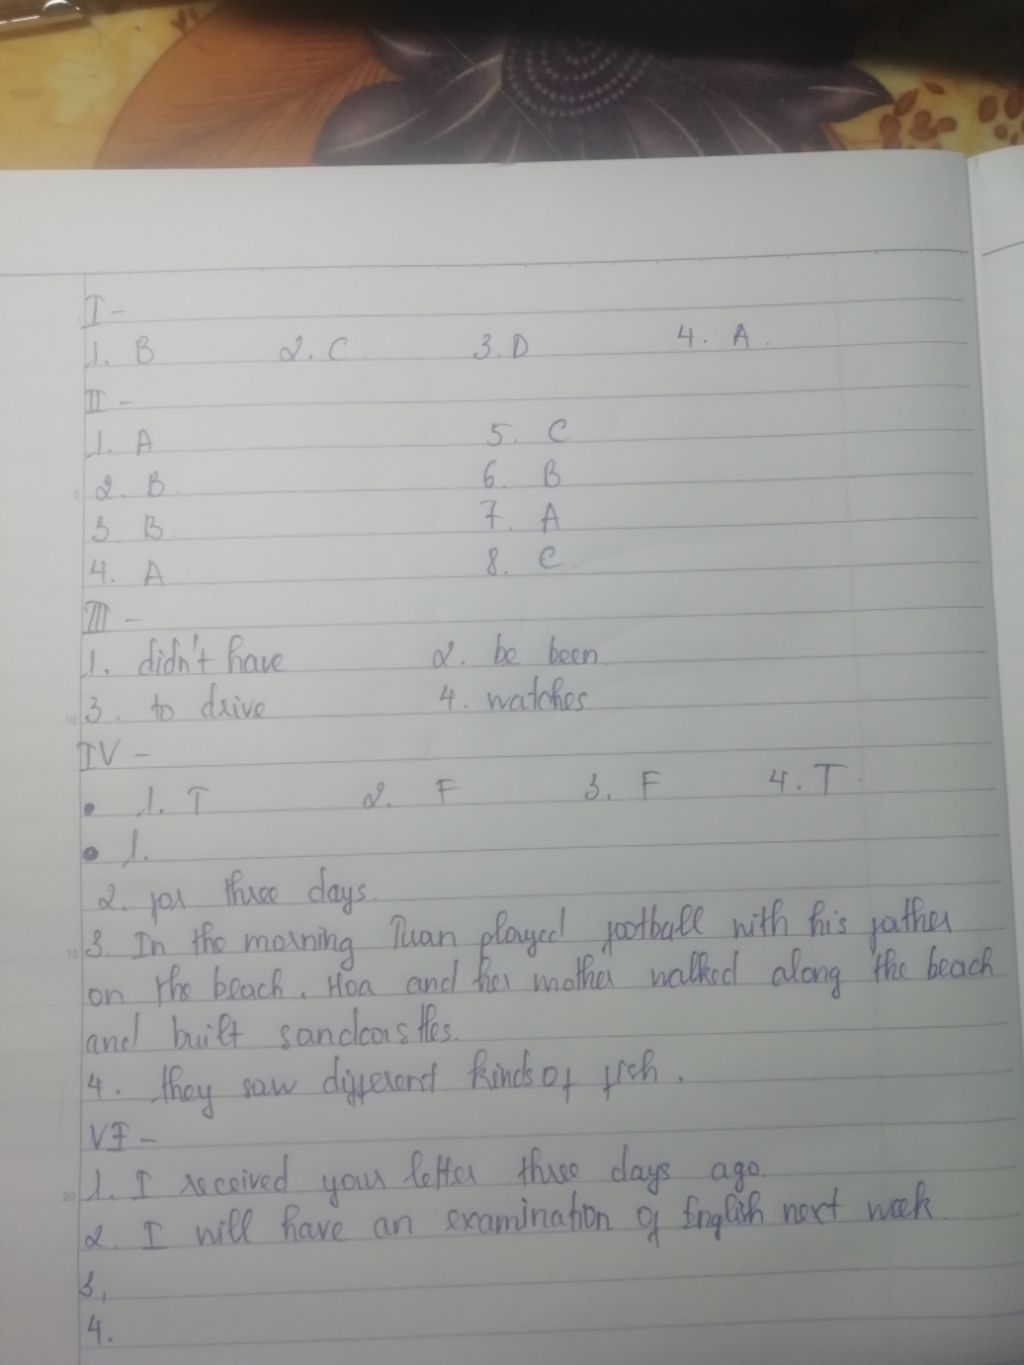 I -
1. B 2. C 3. D 4. A.
II -
1. A 5. C
2. B. 6. B
3 B. 7. A
4. A 8. C
III -
1. didn't have 2. be been.
3. to drive 4. watches
IV -
• 1. T 2. F 3. F 4. T.
• 1.
2. for three days.
3. In the morning Tuan played football with his father
on the beach. Hoa and her mother walked along the beach
and built sandcastles.
4. they saw different kinds of fish.
VI -
1. I received your letter three days ago.
2. I will have an examination of English next week.
3,
4.